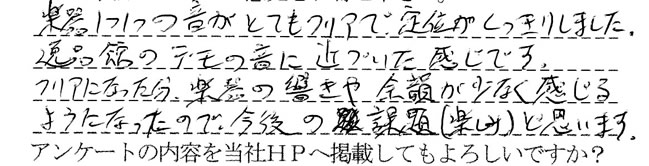 楽器1つ1つの音がとてもクリアで、定位がしっきりしました。
逸品館のデモの音に近づいた感じです。
クリアになったら、楽器の響きや余韻が少なく感じる
ようになったので、今後の課題(楽しみ)と思います。
アンケートの内容を当社HPへ掲載してもよろしいですか?